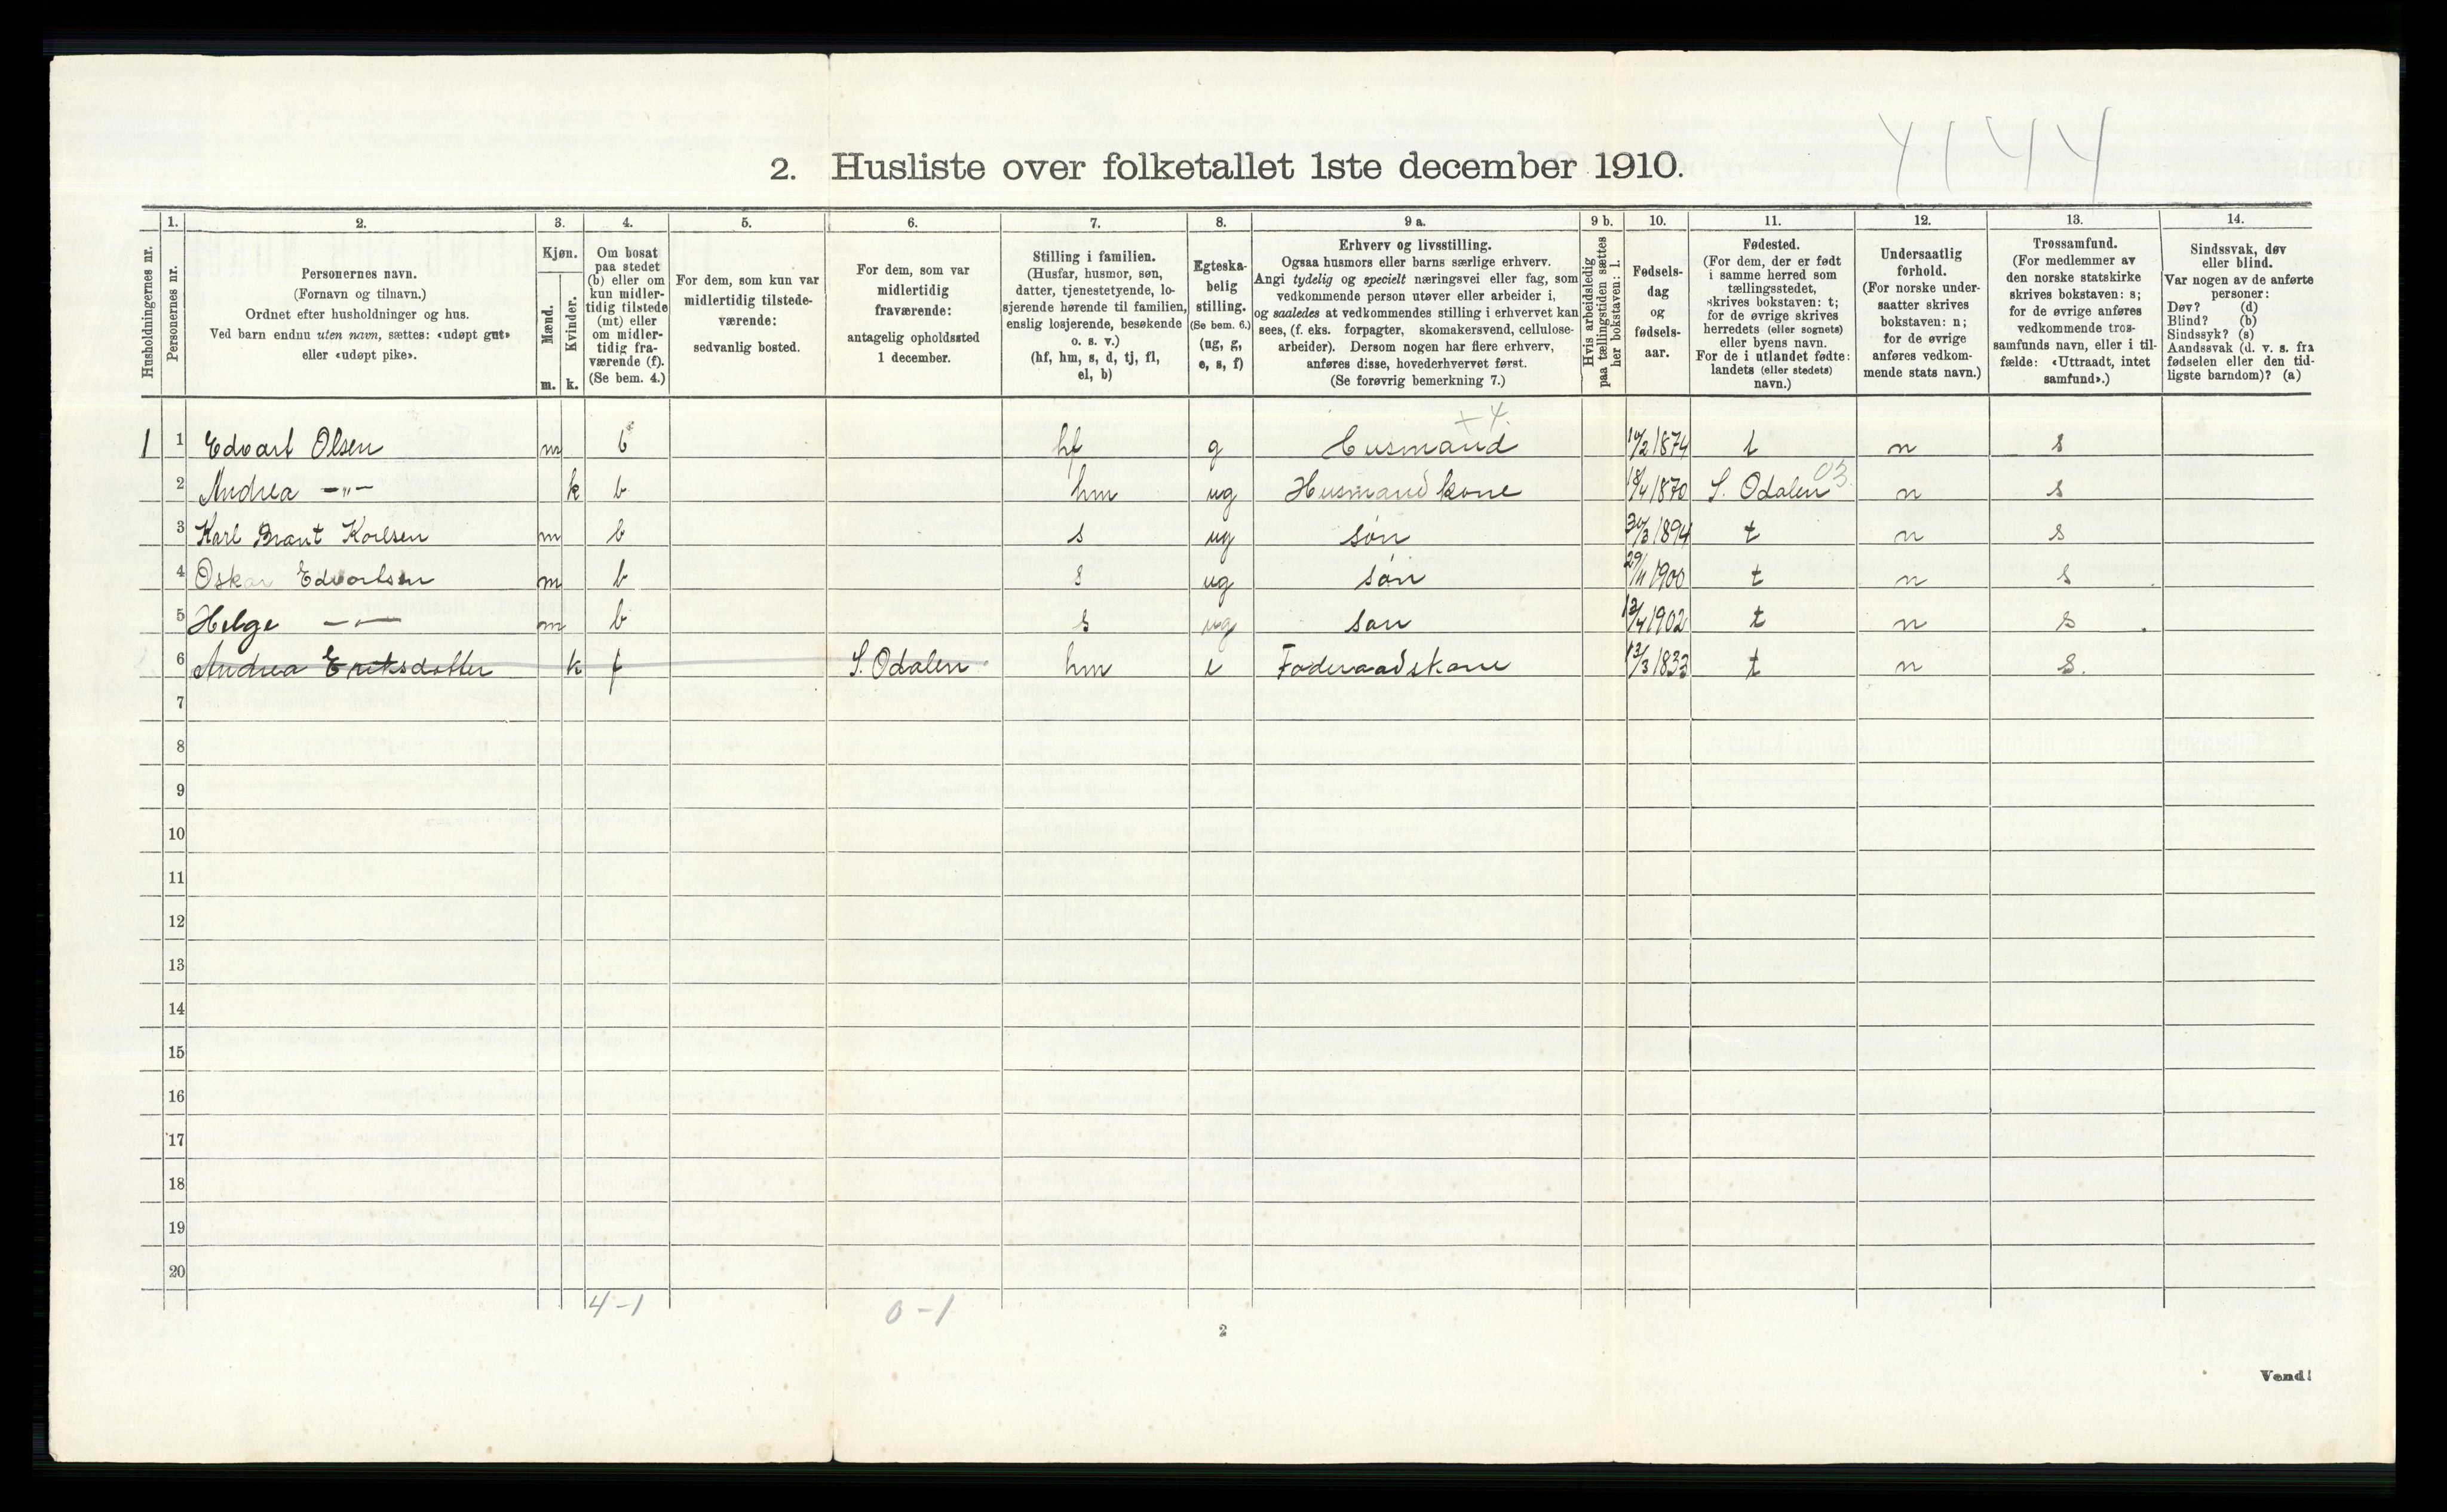 4144
2. Husliste over folketallet 1ste december 1910.
1. 2. 3. 4. 5. 6. 7. 8. 9 a. 9 b. 10. 11. 12. 13. 14.
Husholdningernes nr.
Personernes nr.
Personernes navn.
(Fornavn og tilnavn.)
Ordnet efter husholdninger og hus.
Ved barn endnu uten navn, sættes: «udøpt gut»
eller «udøpt pike».
Kjøn.
Mænd.
Kvinder.
m. k.
Om bosat
paa stedet
(b) eller om
kun midler-
tidig tilstede
(mt) eller
om midler-
tidig fra-
værende (f).
(Se bem. 4.)
For dem, som kun var
midlertidig tilstede-
værende:
sedvanlig bosted.
For dem, som var
midlertidig
fraværende:
antagelig opholdssted
1 december.
Stilling i familien.
(Husfar, husmor, søn,
datter, tjenestetyende, lo-
sjerende hørende til familien,
enslig losjerende, besøkende
o. s. v.)
(hf, hm, s, d, tj, fl,
el, b)
Egteska-
belig
stilling.
(Se bem. 6.)
(ug, g,
e, s, f)
Erhverv og livsstilling.
Ogsaa husmors eller barns særlige erhverv.
Angi tydelig og specielt næringsvei eller fag, som
vedkommende person utøver eller arbeider i,
og saaledes at vedkommendes stilling i erhvervet kan
sees, (f. eks. forpagter, skomakersvend, cellulose-
arbeider). Dersom nogen har flere erhverv,
anføres disse, hovederhvervet først.
(Se forøvrig bemerkning 7.)
Hvis arbeidsledig
paa tællingstiden sættes
her bokstaven: l.
Fødsels-
dag
og
fødsels-
aar.
Fødested.
(For dem, der er født
i samme herred som
tællingsstedet,
skrives bokstaven: t;
for de øvrige skrives
herredets (eller sognets)
eller byens navn.
For de i utlandet fødte:
landets (eller stedets)
navn.)
Undersaatlig
forhold.
(For norske under-
saatter skrives
bokstaven: n;
for de øvrige
anføres vedkom-
mende stats navn.)
Trossamfund.
(For medlemmer av
den norske statskirke
skrives bokstaven: s;
for de øvrige anføres
vedkommende tros-
samfunds navn, eller i til-
fælde: «Uttraadt, intet
samfund».)
Sindssvak, døv
eller blind.
Var nogen av de anførte
personer:
Døv? (d)
Blind? (b)
Sindssyk? (s)
Aandssvak (d. v. s. fra
fødselen eller den tid-
ligste barndom)? (a)
x 4.
1 1 Edvart Olsen m b hf g Husmand 14/2 1874 t n s
03.
2 Andrea -"- k b hm ug Husmand kone 18/4 1870 S. Odalen n s
3 Karl Brant Korlsen m b s ug søn 1894 t n s
4 Oskar Edvartsen m b s ug søn 29/11 1900 t n s
5 Helge -"- m b s ug søn 1902 t n s
6 Andrea Eriksdatter k f S. Odalen hm e Føderaadskone 13/3 1833 t n s.
7
8
9
10
11
12
13
14
15
16
17
18
19
20
4-1 0-1
2
Vend!